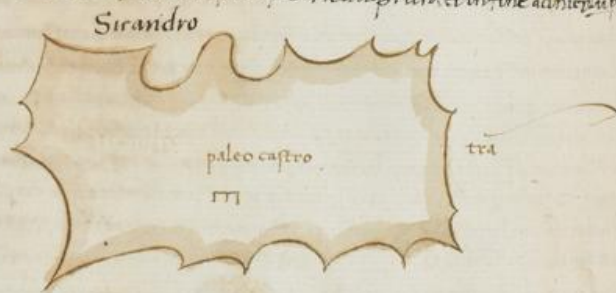 Sicandro
paleo castro
tra